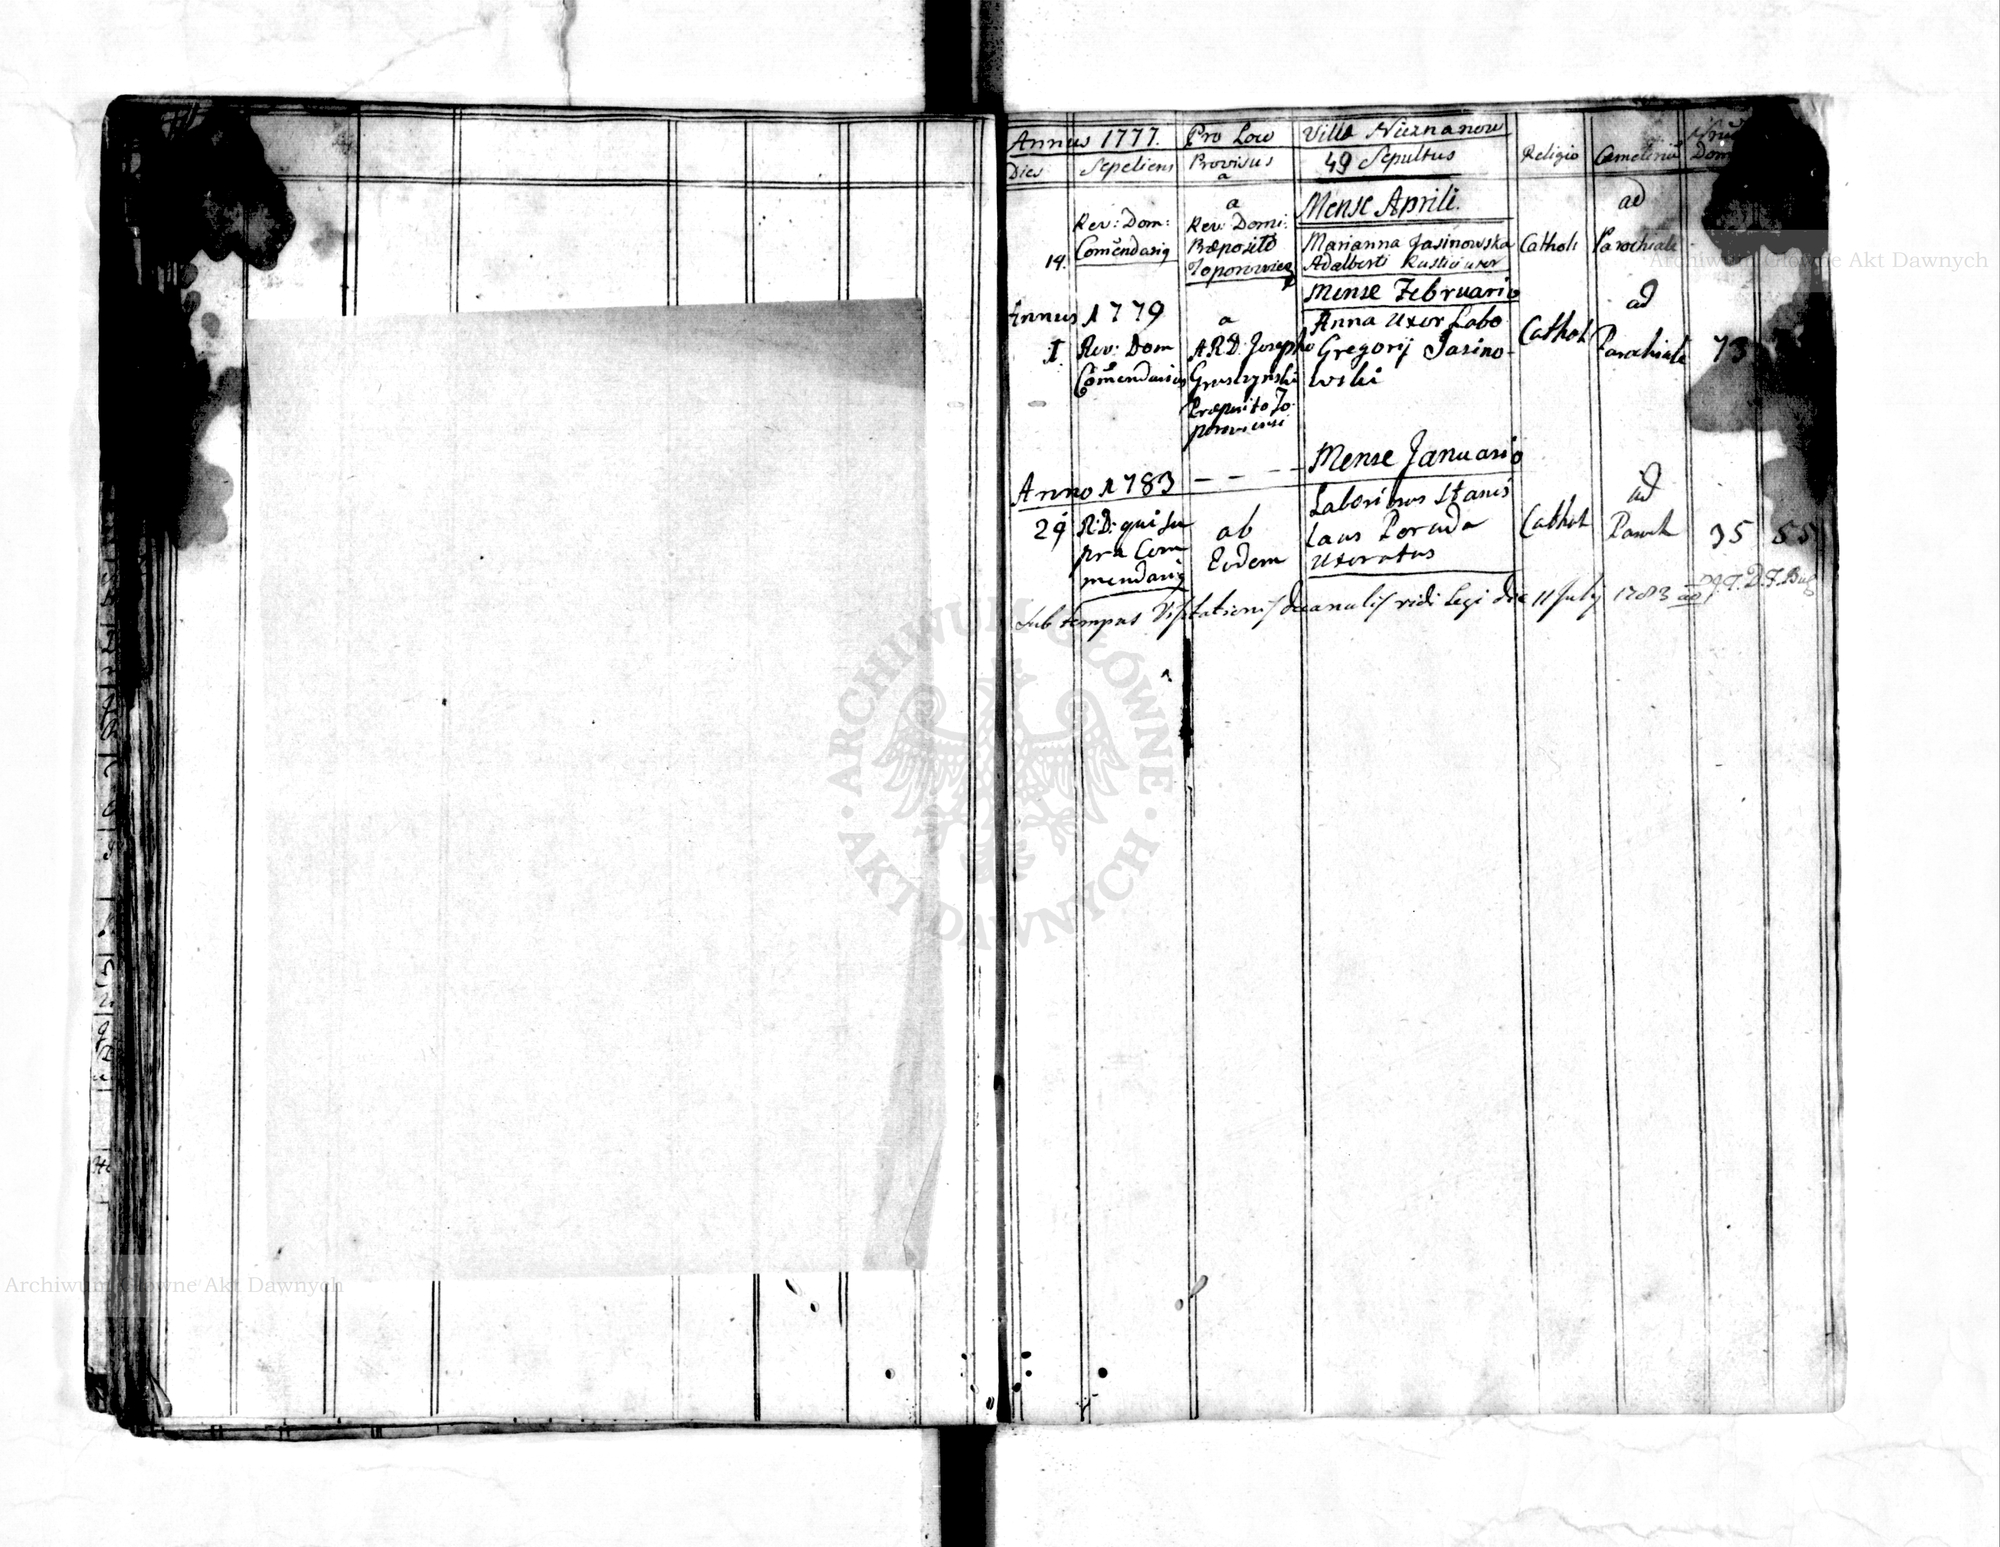 Annus 1777. Pro Loco Villa Nieznanow
Dies Sepeliens Provisus 49 Sepultus Religio Cemeteriū
a
Mense Aprili.
14. Rev: Dom: Comēndariq
a Rev: Domi:
Præposito
Marianna Jasinowska
Adalberti Rustici uxor
Catholi
ad
Parochiale
Mense Februario
Annus 1779
I. Rev: Dom
Comēndarius
a
A.R.D. Josepho
Præposito To
poroviensi
Anna Uxor Labo
Gregorij Jasino-
wski
Cathol
ad
Parochiale
73
Mense Januario
Anno 1783 - -
29 R:D: qui su
pra Com
mendariq
ab
Eodem
Laboriosus Stanis
laus Poruda
Uxoratus
Cathol
ad
Paroch
35 55
Sub tempus Visitationis Decanalis vidi Legi die 11 July 1783
ARCHIWUM GŁÓWNE · AKT DAWNYCH ·
Archiwum Główne Akt Dawnych
Archiwum Główne Akt Dawnych